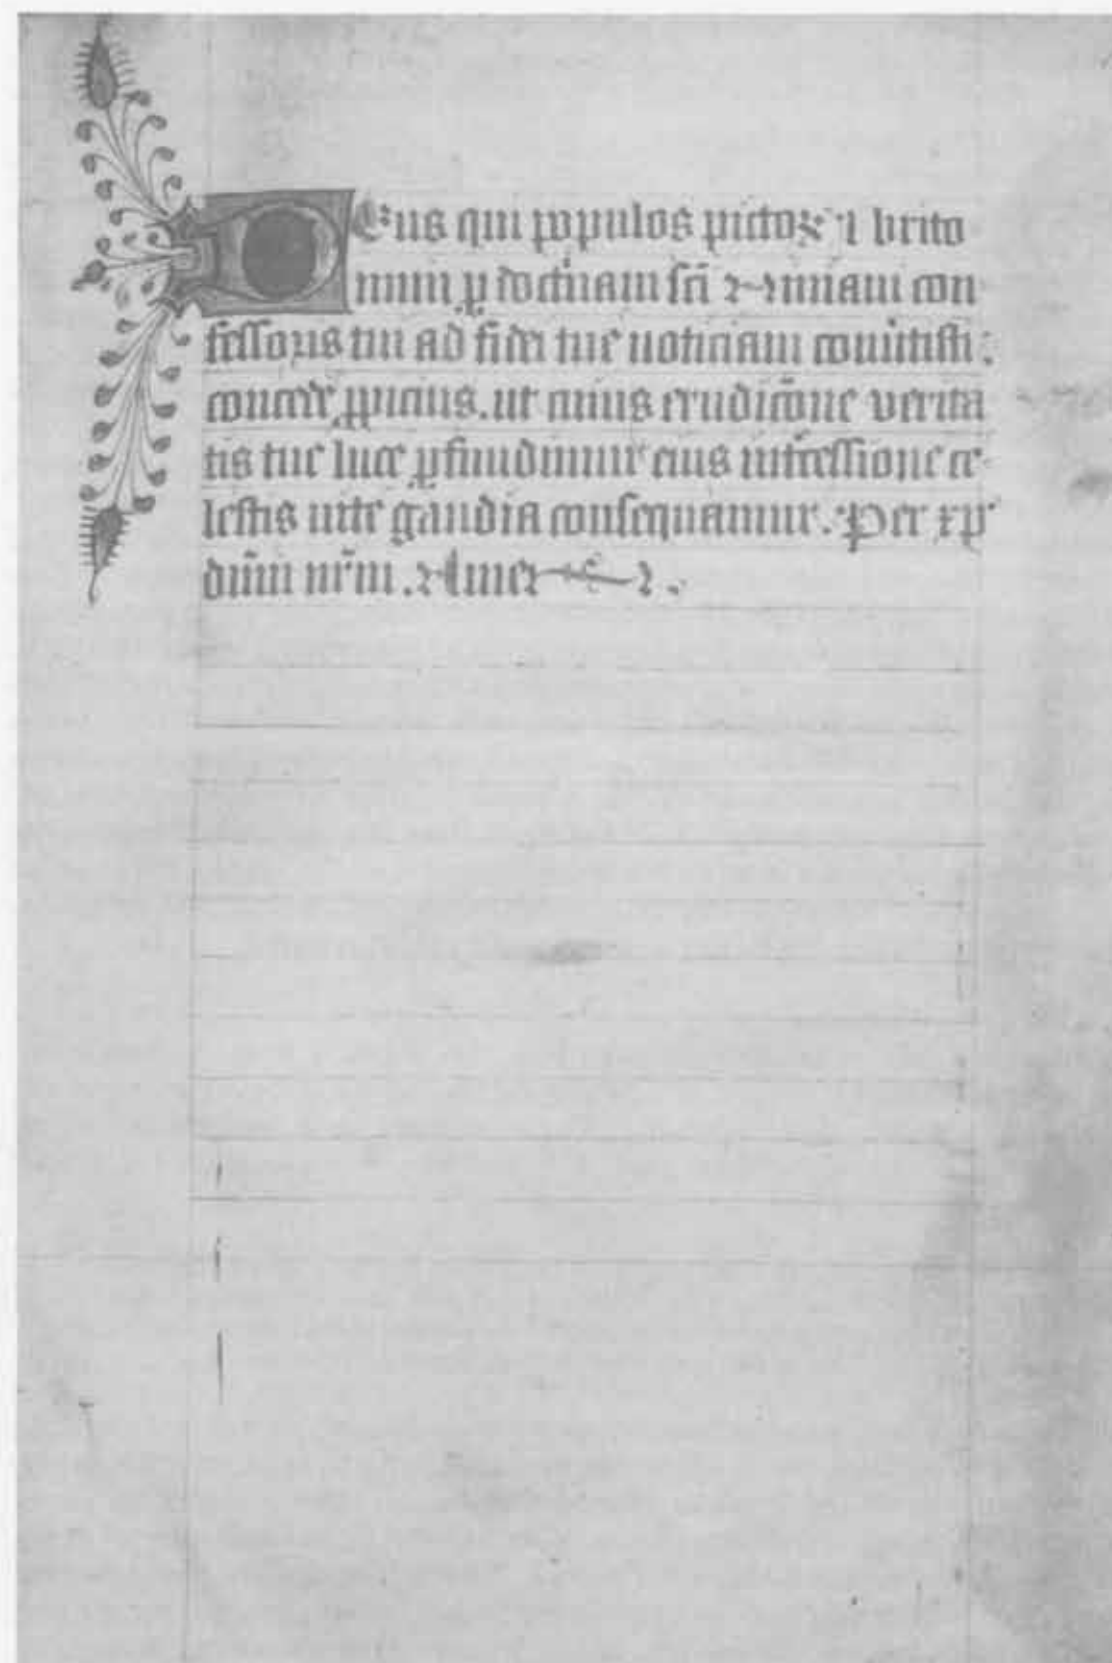 DEus qui populos pictoꝝ ⁊ brito
num ꝑ doctⁱnam sc̄i Niniani con
fessoris tui ad fidei tue noticiam conu̓tisti:
concede ꝓpicius. ut cuius erudic̄one verita
tis tue luce ꝑfundimur eius int̓cessione ce
lestis uite gaudia consequamur. Per xp̄
dn̄m nr̄m. Amen.